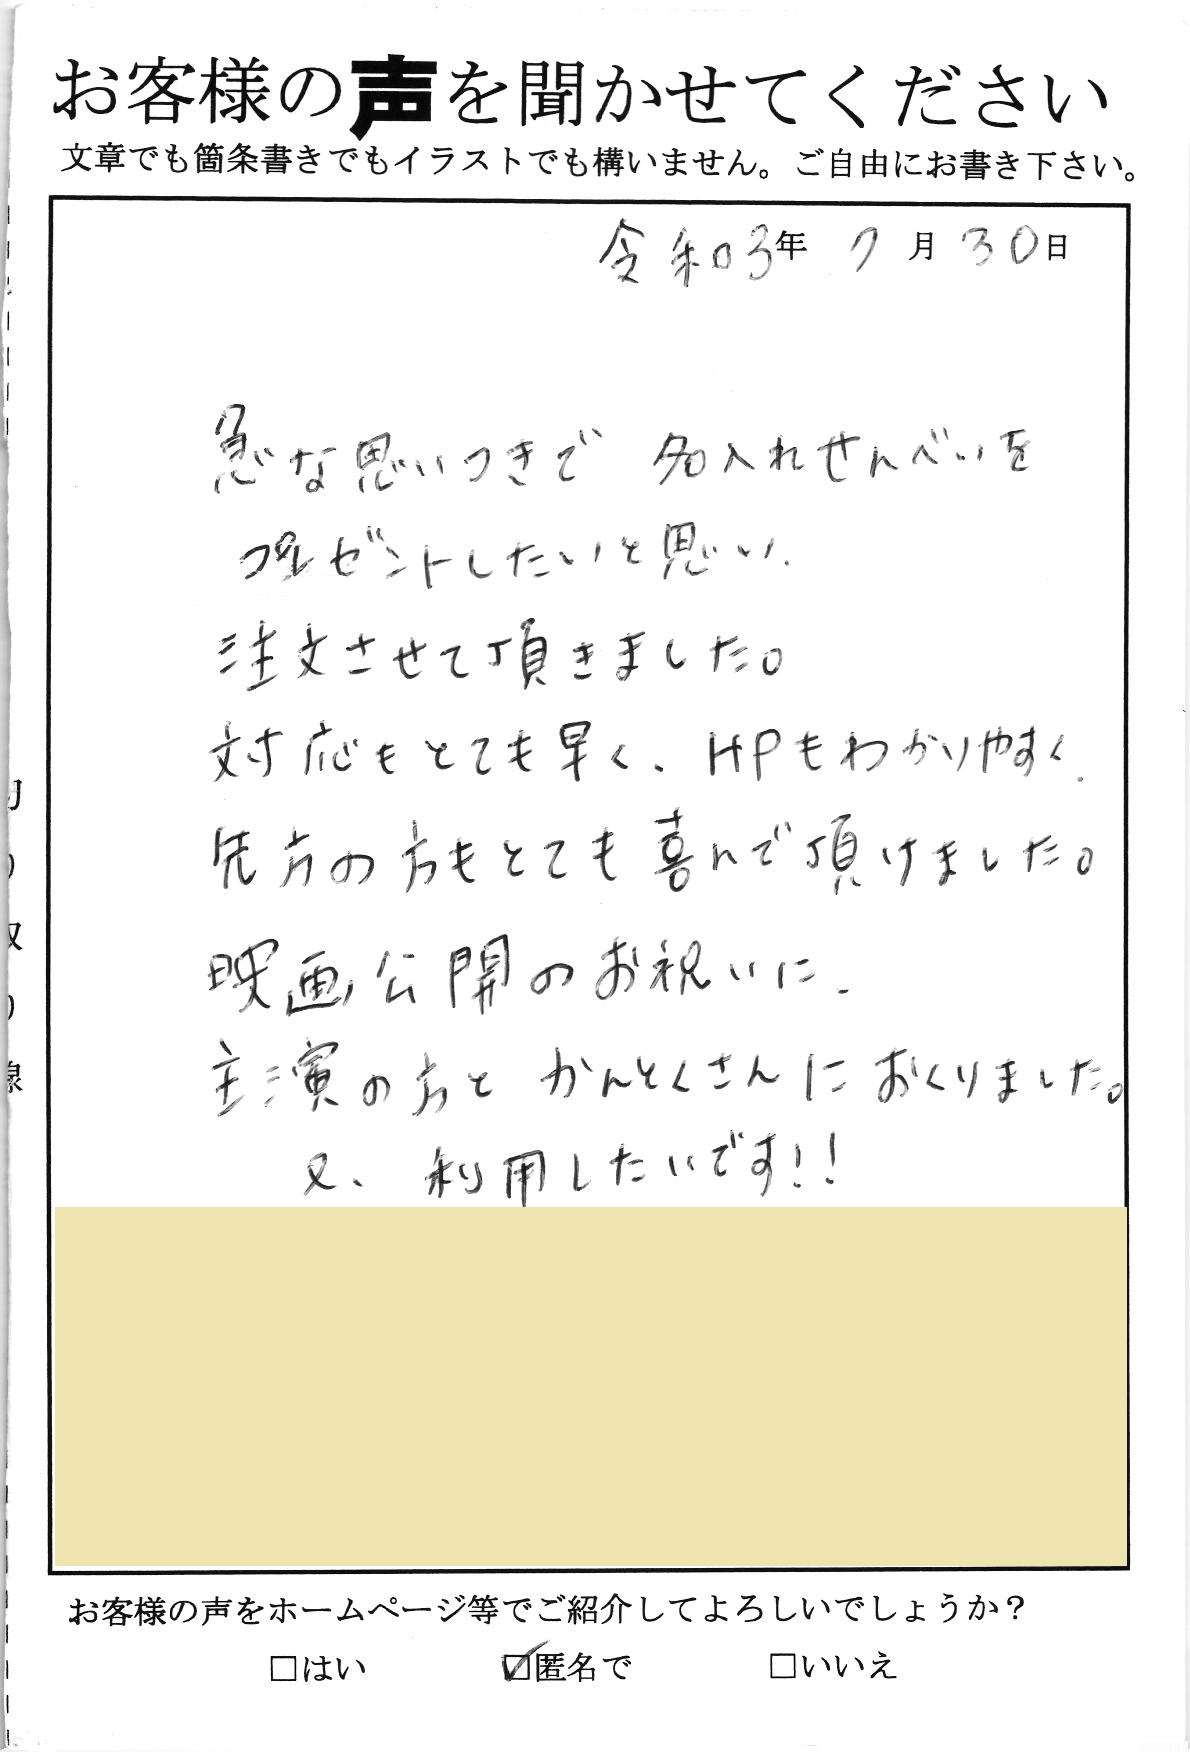 お客様の声を聞かせてください
文章でも箇条書きでもイラストでも構いません。ご自由にお書き下さい。
令和03年 7月30日
急な思いつきで 名入れせんべいを
プレゼントしたいと思い、
注文させて頂きました。
対応もとても早く、HPもわかりやすく、
先方の方もとても喜んで頂けました。
映画公開のお祝いに、
主演の方と かんとくさんに おくりました。
又、利用したいです!!
お客様の声をホームページ等でご紹介してよろしいでしょうか？
□はい ☑匿名で □いいえ